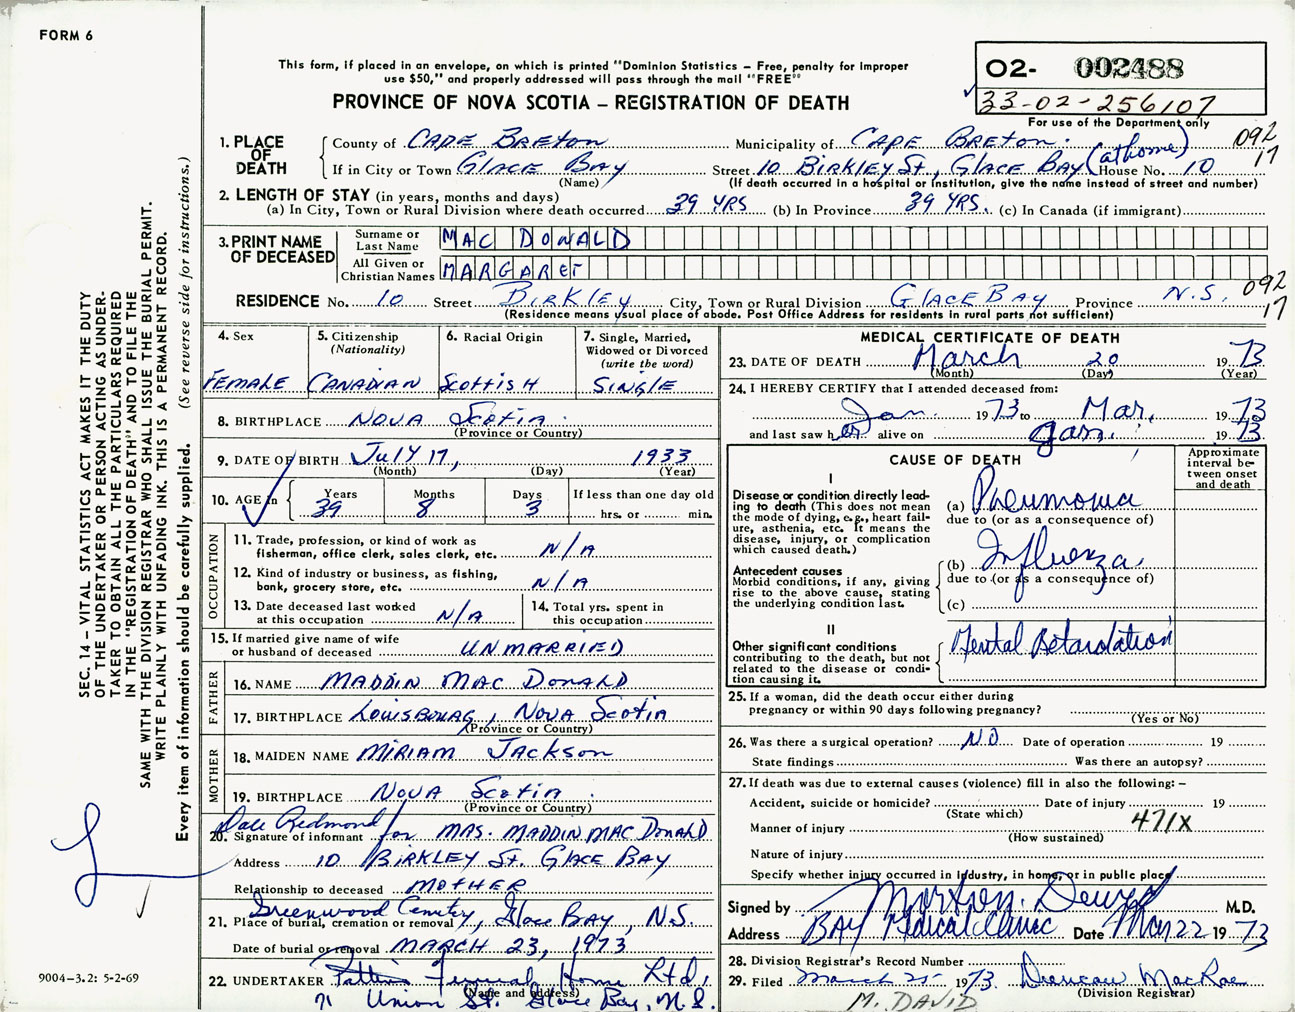 FORM 6
This form, if placed in an envelope, on which is printed "Dominion Statistics – Free, penalty for improper
use $50," and properly addressed will pass through the mail "FREE"
PROVINCE OF NOVA SCOTIA – REGISTRATION OF DEATH
02- 002488
33-02-256107
For use of the Department only
092
17
1. PLACE OF DEATH
County of CAPE BRETON Municipality of CAPE BRETON
If in City or Town GLACE BAY Street 10 BIRKLEY St, GLACE BAY (at home) House No. 10
(Name) (If death occurred in a hospital or institution, give the name instead of street and number)
2. LENGTH OF STAY (in years, months and days)
(a) In City, Town or Rural Division where death occurred 39 YRS (b) In Province 39 YRS. (c) In Canada (if immigrant)
3. PRINT NAME OF DECEASED
Surname or Last Name MAC DONALD
All Given or Christian Names MARGARET
RESIDENCE No. 10 Street BIRKLEY City, Town or Rural Division GLACE BAY Province N.S.
092
17
(Residence means usual place of abode. Post Office Address for residents in rural parts not sufficient)
4. Sex
FEMALE
5. Citizenship
(Nationality)
CANADIAN
6. Racial Origin
SCOTTISH
7. Single, Married,
Widowed or Divorced
(write the word)
SINGLE
8. BIRTHPLACE NOVA SCOTIA
(Province or Country)
9. DATE OF BIRTH JULY 17, 1933
(Month) (Day) (Year)
10. AGE in
Years 39 Months 8 Days 3 If less than one day old
hrs. or min.
OCCUPATION
11. Trade, profession, or kind of work as
fisherman, office clerk, sales clerk, etc. N/A
12. Kind of industry or business, as fishing,
bank, grocery store, etc. N/A
13. Date deceased last worked
at this occupation N/A
14. Total yrs. spent in
this occupation
15. If married give name of wife
or husband of deceased UNMARRIED
FATHER
16. NAME MADDIN MAC DONALD
17. BIRTHPLACE LOUISBOURG, NOVA SCOTIA
(Province or Country)
MOTHER
18. MAIDEN NAME MIRIAM JACKSON
19. BIRTHPLACE NOVA SCOTIA
(Province or Country)
Dale Redmond
20. Signature of informant for MRS. MADDIN MAC DONALD
Address 10 BIRKLEY St. GLACE BAY
Relationship to deceased MOTHER
Greenwood Cemetry, Glace BAY, N.S.
21. Place of burial, cremation or removal
Date of burial or removal MARCH 23, 1973
22. UNDERTAKER Funeral Home Ltd,
(Name and address)
71 Union St. Glace Bay, N.S.
MEDICAL CERTIFICATE OF DEATH
23. DATE OF DEATH March 20 1973
(Month) (Day) (Year)
24. I HEREBY CERTIFY that I attended deceased from:
Jan. 1973 to Mar. 1973
and last saw her alive on Jan. 1973
CAUSE OF DEATH
Approximate
interval be-
tween onset
and death
I
Disease or condition directly lead-
ing to death (This does not mean
the mode of dying, e.g., heart fail-
ure, asthenia, etc. It means the
disease, injury, or complication
which caused death.)
(a) Pneumonia
due to (or as a consequence of)
Antecedent causes
Morbid conditions, if any, giving
rise to the above cause, stating
the underlying condition last.
(b) Influenza
due to (or as a consequence of)
(c)
II
Other significant conditions
contributing to the death, but not
related to the disease or condi-
tion causing it.
Mental Retardation
25. If a woman, did the death occur either during
pregnancy or within 90 days following pregnancy?
(Yes or No)
26. Was there a surgical operation? NO Date of operation 19
State findings Was there an autopsy?
27. If death was due to external causes (violence) fill in also the following: –
Accident, suicide or homicide? Date of injury 19
(State which)
Manner of injury 471X
(How sustained)
Nature of injury
Specify whether injury occurred in industry, in home, or in public place
Signed by M.D.
Address BAY Medical Clinic Date Mar 22 1973
28. Division Registrar's Record Number
29. Filed March 25 1973 Duncan MacRae
(Division Registrar)
M. DAVID
SEC. 14 – VITAL STATISTICS ACT MAKES IT THE DUTY
OF THE UNDERTAKER OR PERSON ACTING AS UNDER-
TAKER TO OBTAIN ALL THE PARTICULARS REQUIRED
IN THE "REGISTRATION OF DEATH" AND TO FILE THE
SAME WITH THE DIVISION REGISTRAR WHO SHALL ISSUE THE BURIAL PERMIT.
WRITE PLAINLY WITH UNFADING INK. THIS IS A PERMANENT RECORD.
Every item of information should be carefully supplied. (See reverse side for instructions.)
9004-3.2: 5-2-69